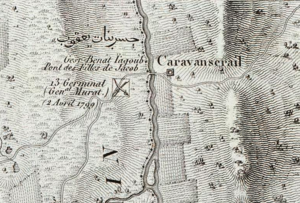 جسر بنات يعقوب
Gesr Benat Iagoub
Pont des Filles de Jacob
Caravanserail
13 Germinal
Gen.al Murat
(2 Avril 1799)